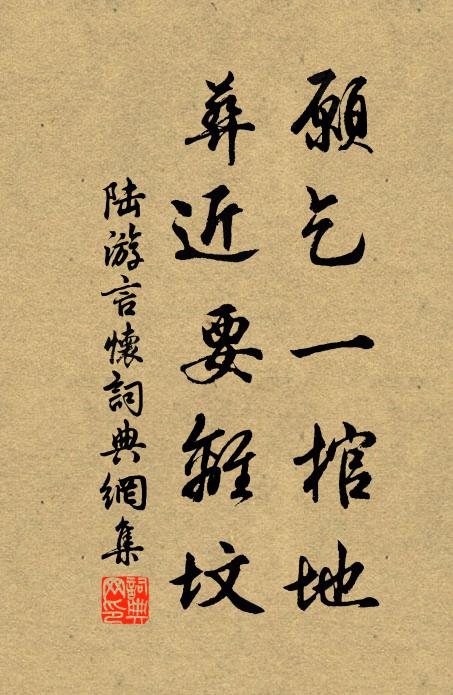 願乞一棺地
葬近要離墳
陆游言懷詞典網集
詞典网印